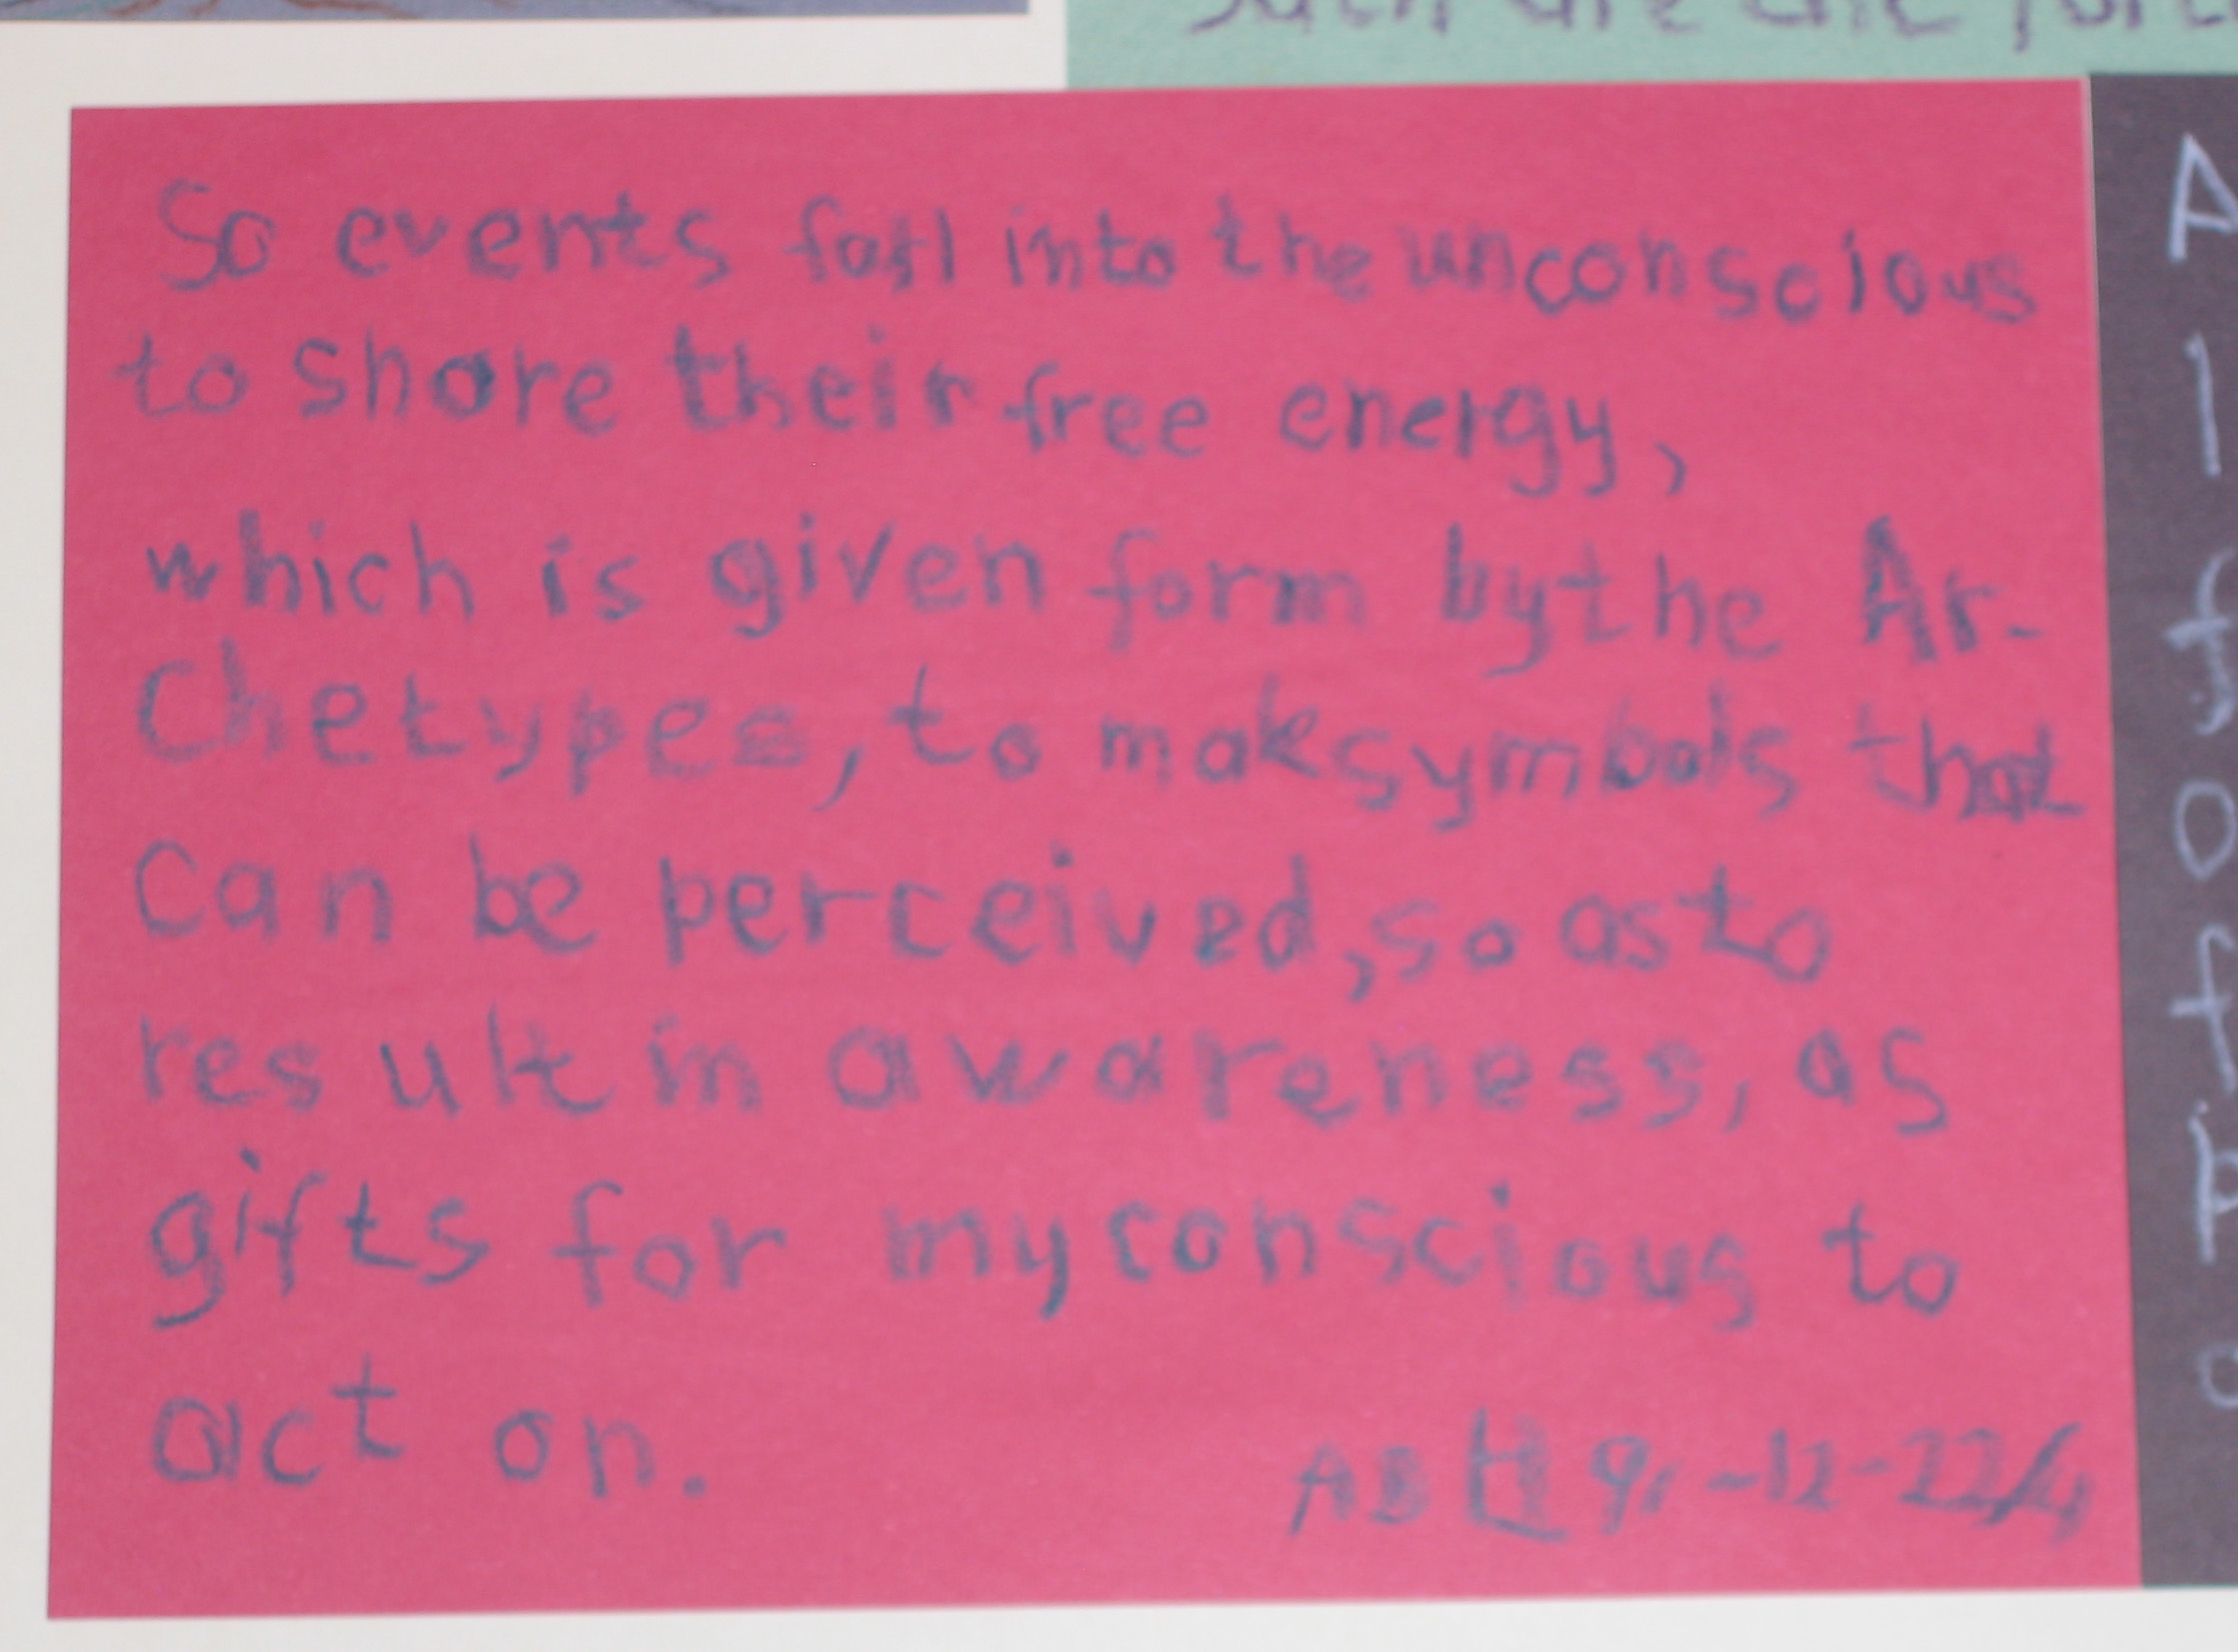 So events fall into the unconscious
to share their free energy,
which is given form by the Ar-
chetypes, to mak symbols that
can be perceived, so as to
result in awareness, as
gifts for my conscious to
act on.